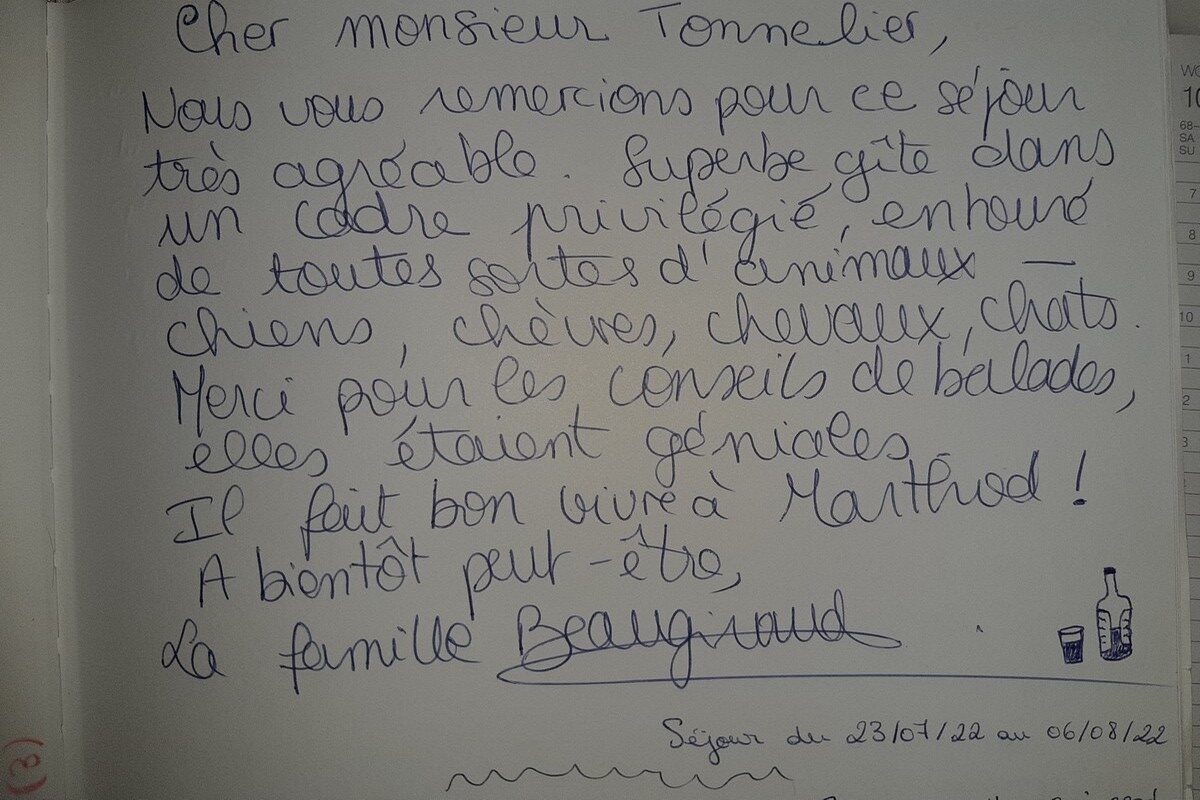 Cher monsieur Tonnelier,
Nous vous remercions pour ce séjour
très agréable. Superbe gîte dans
un cadre privilégié, entouré
de toutes sortes d'animaux —
chiens, chèvres, chevaux, chats.
Merci pour les conseils de balades,
elles étaient géniales.
Il fait bon vivre à Marthod !
A bientôt peut-être,
La famille Beaugiraud
Séjour du 23/07/22 au 06/08/22
10
68-
SA
SU
7
8
9
10
1
2
3
(e)